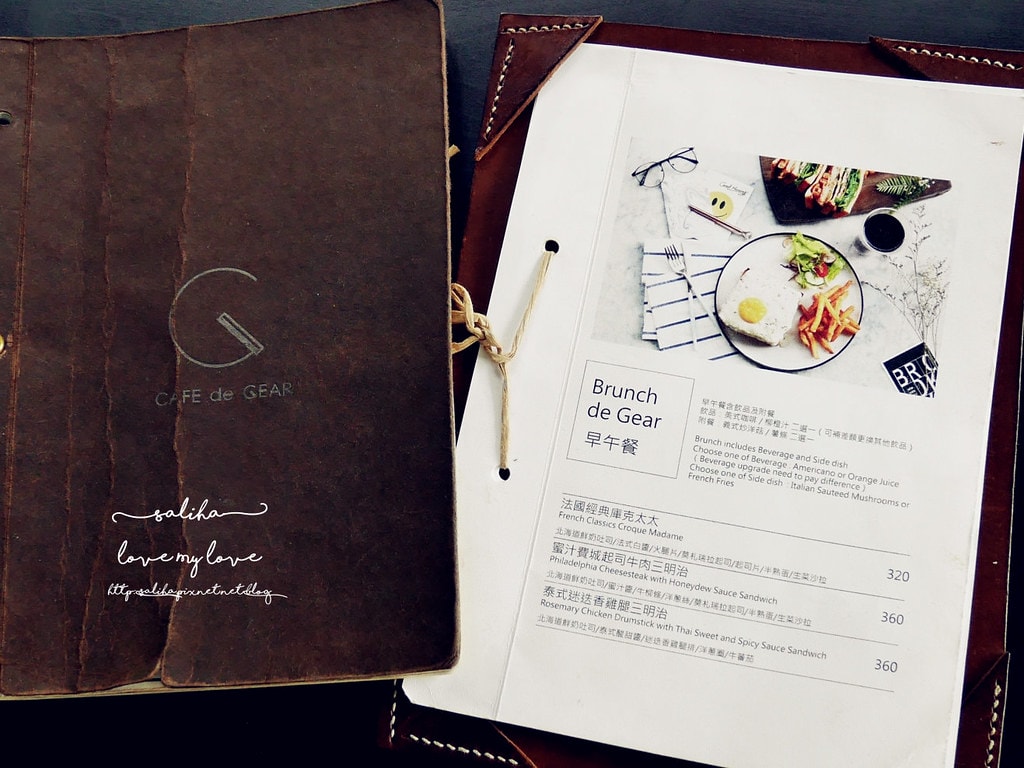 CAFE de GEAR
saliha
love my love
http:saliha.pixnet.net.blog
Brunch
de Gear
早午餐
早午餐含飲品及附餐
飲品：美式咖啡 / 柳橙汁 二選一（可補差額更換其他飲品）
附餐：義式炒洋菇 / 薯條 二選一
Brunch includes Beverage and Side dish
Choose one of Beverage : Americano or Orange Juice
( Beverage upgrade need to pay difference )
Choose one of Side dish : Italian Sauteed Mushrooms or
French Fries
法國經典庫克太太
French Classics Croque Madame
北海道鮮奶吐司/法式白醬/火腿片/莫札瑞拉起司/起司片/半熟蛋/生菜沙拉 320
蜜汁費城起司牛肉三明治
Philadelphia Cheesesteak with Honeydew Sauce Sandwich
北海道鮮奶吐司/蜜汁醬/牛柳條/洋蔥絲/莫札瑞拉起司/半熟蛋/生菜沙拉 360
泰式迷迭香雞腿三明治
Rosemary Chicken Drumstick with Thai Sweet and Spicy Sauce Sandwich
北海道鮮奶吐司/泰式酸甜醬/迷迭香雞腿排/洋蔥圈/牛蕃茄 360